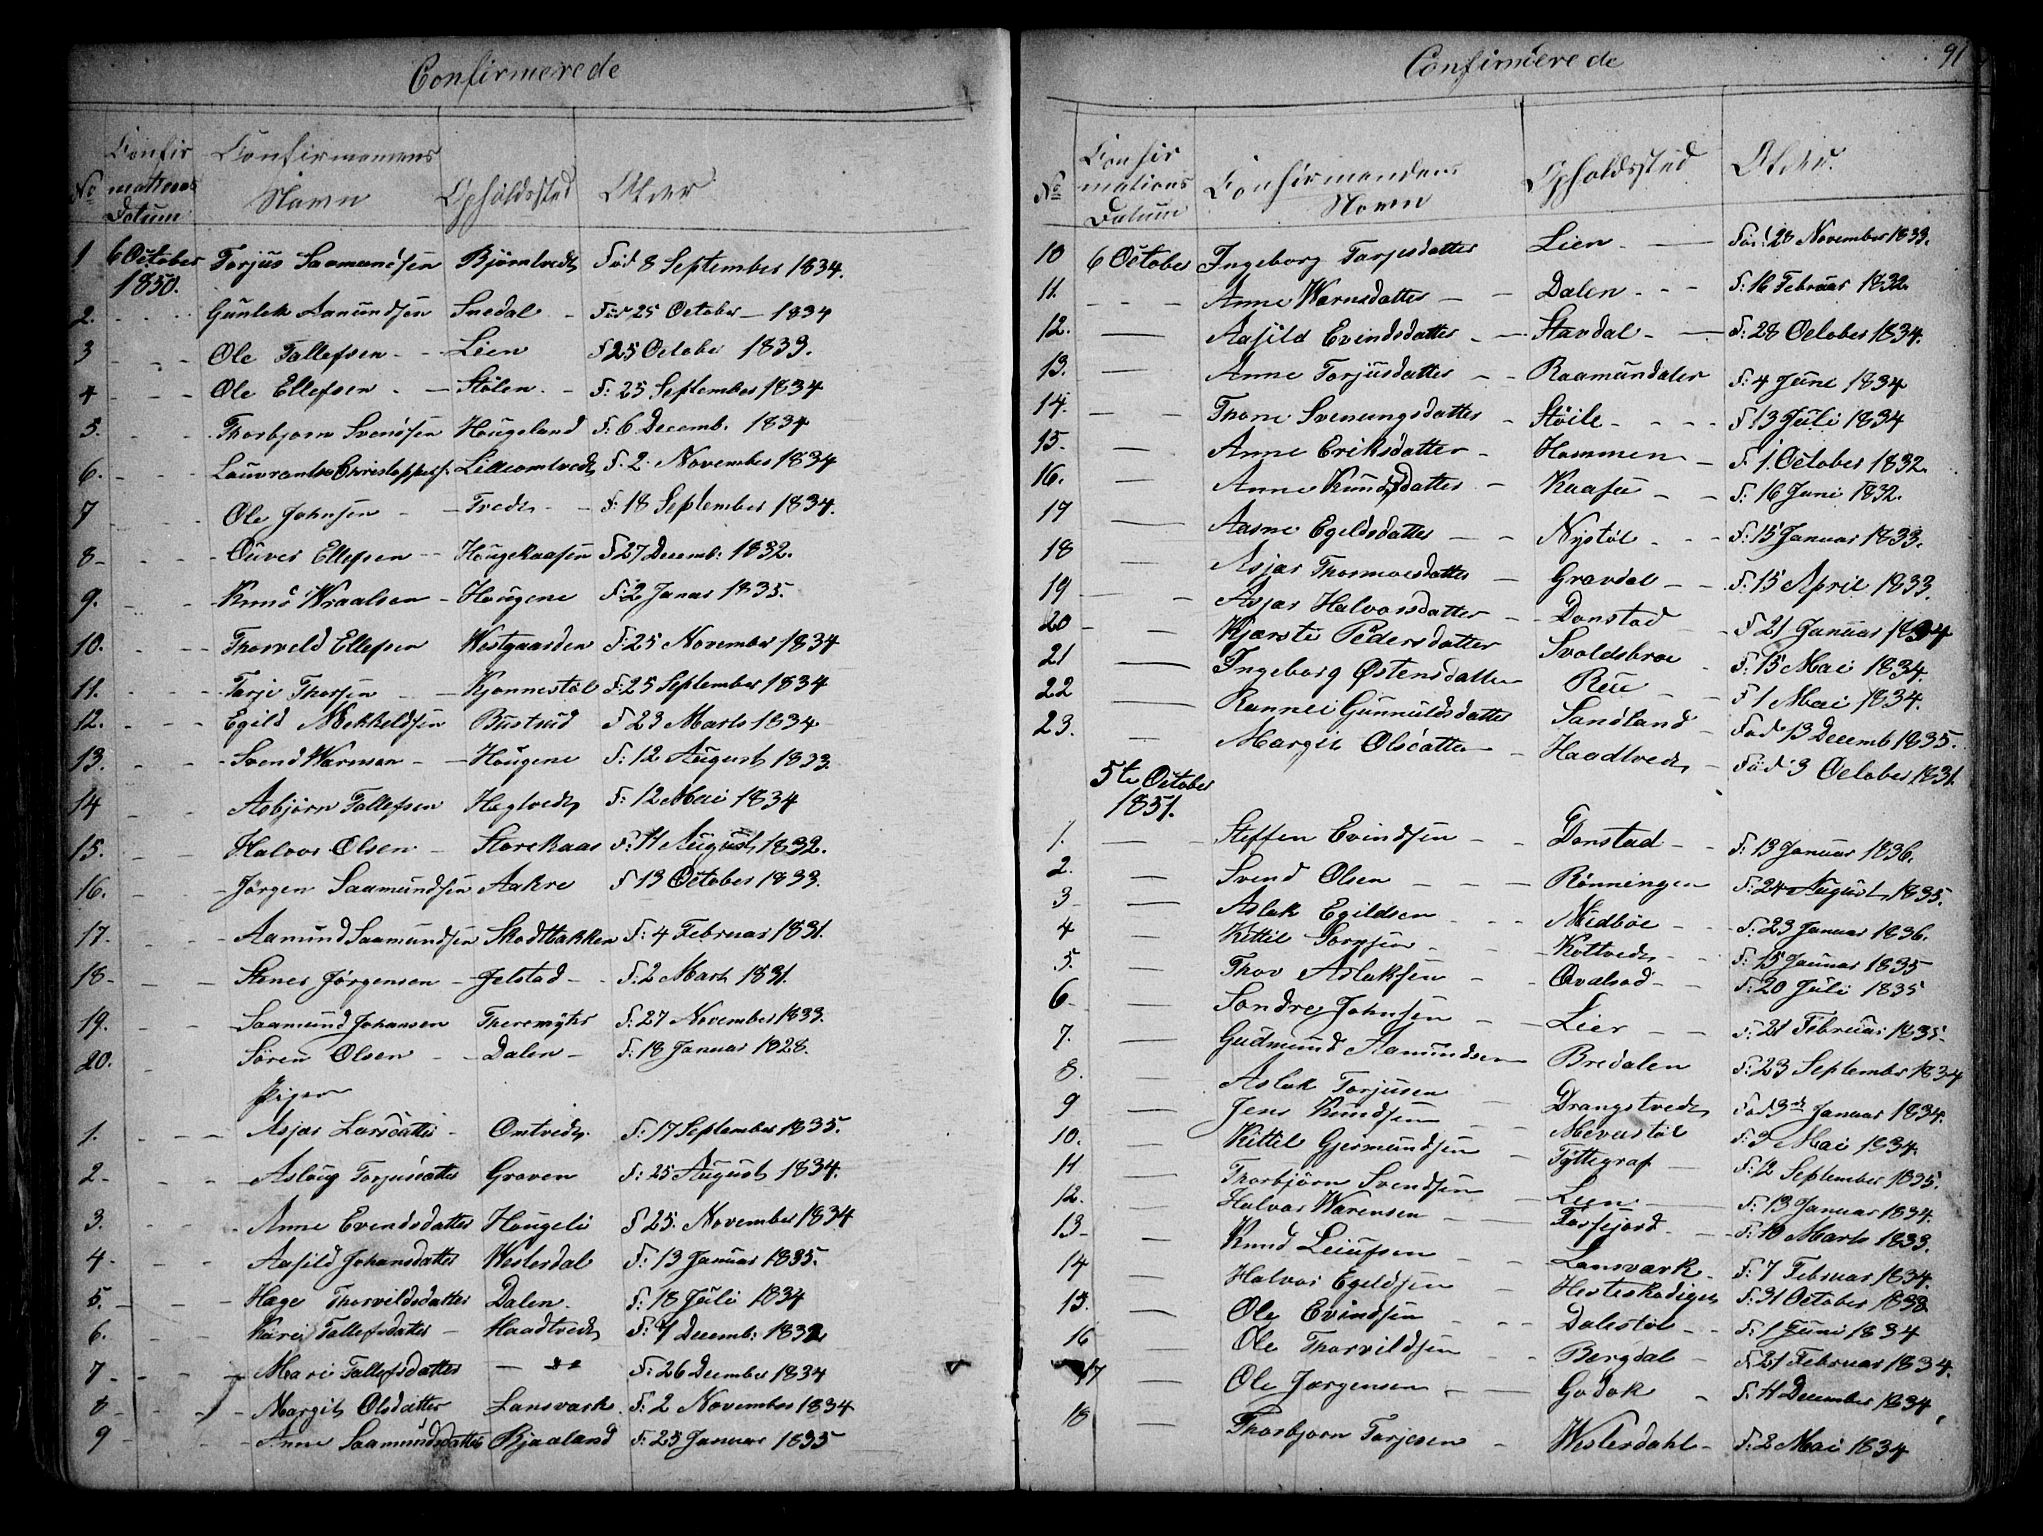 Confirmerede
No Confirmations Datum Confirmanens Navn Opholdssted Alder
1 6 October 1850. Torjus Saamundsen Bjørntvedt Fød 8 September 1834.
2. Gunlek Aamundsen Snedal Fød 25 October 1834
3 Ole Tallefsen Lien F 25 October 1833.
4 Ole Ellefsen Stølen F: 25 September 1834
5. Thorbjørn Svendsen Hougeland F: 6 Decemb. 1834
6. Lilleomtvedt F. 2. November 1834
7 Ole Johnsen F: 18 September 1834.
8 Ellefsen Hougekaasen F 27 Decemb: 1832.
9. Knud Wraalsen Hougene F: 2 Januar 1835.
10. Thorveld Ellefsen Westgaarden F: 25 November 1834
11. Tarje Thorsen Kjonnestøl F: 25 September 1834
12. Egild Mekkeldsen Bustrud F 23 Marts 1834
13. Svend Warnsen Hougene F: 12 August 1833.
14 Asbjørn Tallefsen Hegtvedt F: 12 Mai 1834
15. Halvor Olsen Storekaas F: 11 August 1832.
16. Jørgen Saamundsen Aakre F 13 October 1833.
17. Aamund Saamundsen Skodtbakken F: 4 Februar 1831.
18 Stener Jørgensen Jelstad F: 2 Marts 1831.
19. Saamund Johansen F: 27 November 1833.
20. Søren Olsen Dalen F: 18 Januar 1828.
Piger
1. Asjer Larsdatter Omtvedt F: 17 September 1835.
2 Aslaug Torjusdatter Graven F: 25 August 1834.
3. Anne Evendsdatter Hougeli F 25. November 1834
4 Aasild Johansdatter Westerdal F: 13 Januar 1835.
5. Hæge Thorvildsdatter Dalen F: 18 Juli 1834
6. Kari Tallefsdatter Haadtvedt F: 4 Decemb: 1832
7 Mari Tallefsdatter F: 26 December 1834
8 Margit Olsdatter Lansværk F: 2 November 1834
9 Anne Saamundsdatter Bjaaland F: 25 Januar 1835
Confirmerede 91
No Confirmations Datum Confirmandens Navn Opholdssted Alder.
10 6 October Ingeborg Tarjesdatter Lien Fød 28 November 1833.
11. Anne Warnsdatter Dalen F: 16 Februar 1832.
12. Aasild Evindsdatter Stavdal F: 28 October 1834.
13. Anne Torjusdatter Raamundalen F: 4 Juni 1834
14. Thone Svenungsdatter Støile F 13 Juli 1834
15. Anne Eriksdatter Hammen F 1. October 1832.
16. Anne Knudsdatter Kaasa F: 16 Juni 1832.
17 Aasne Egeldsdatter Nystøl F: 15 Januar 1833.
18 Asjer Thormoesdatter Gravdal F: 15 April 1833.
19 Asjer Halvorsdatter Donstad F 21 Januar 1834
20 Kjersti Pedersdatter Svoldsbroe F: 15 Mai 1834.
21 Ingeborg Østensdatter Rue F 1 Mai 1834.
22 Rannei Gunnuldsdatter Sandland Fød 13 Decemb 1835.
23. Margit Olsdatter Haadtvedt Fød 3 October 1831.
5te October 1851.
1. Steffen Evindsen Donstad F: 13 Januar 1836.
2. Svend Olsen Rönningen F: 24 August 1835.
3 Aslak Egildsen Midbøe F: 23 Januar 1836.
4 Kittil Kottvedt F: 15 Januar 1835
5. Thov Aslaksen F: 20 Juli 1835
6 Sondre Johnsen Lier F: 21 Februar 1835.
7. Gudmund Aamundsen Bredalen F: 23 September 1834
8. Aslak Torjusen Drangstvedt Fød 3de Januar 1834.
9 Jens Knudsen Meverstøl F: 3 Mai 1834.
10. Kittil Gjermundsen Tyttegraf F: 12 September 1835.
11 Thorbjørn Svendsen Lien F: 13 Januar 1834.
12. Halvor Warensen F: 10 Marts 1833.
13 Knud Leiufsen Lansværk F: 7 Februar 1834.
14 Halvor Egeldsen F: 31 October 1833
15. Ole Evindsen Dalestøl F: 1 Juni 1834
16 Ole Thorvildsen Bergdal F: 21 Februar 1834.
17 Ole Jørgensen Godok F: 11 December 1834
18 Thorbjørn Tarjesen Westerdahl F: 2 Mai 1834